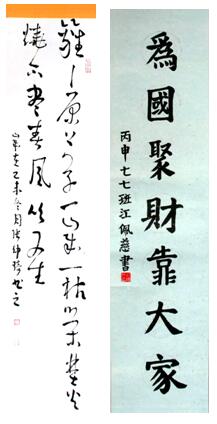 爲國聚財靠大家
丙申七七班江佩慈書
離〻原上草一歲一枯榮野火
燒不盡春風吹又生